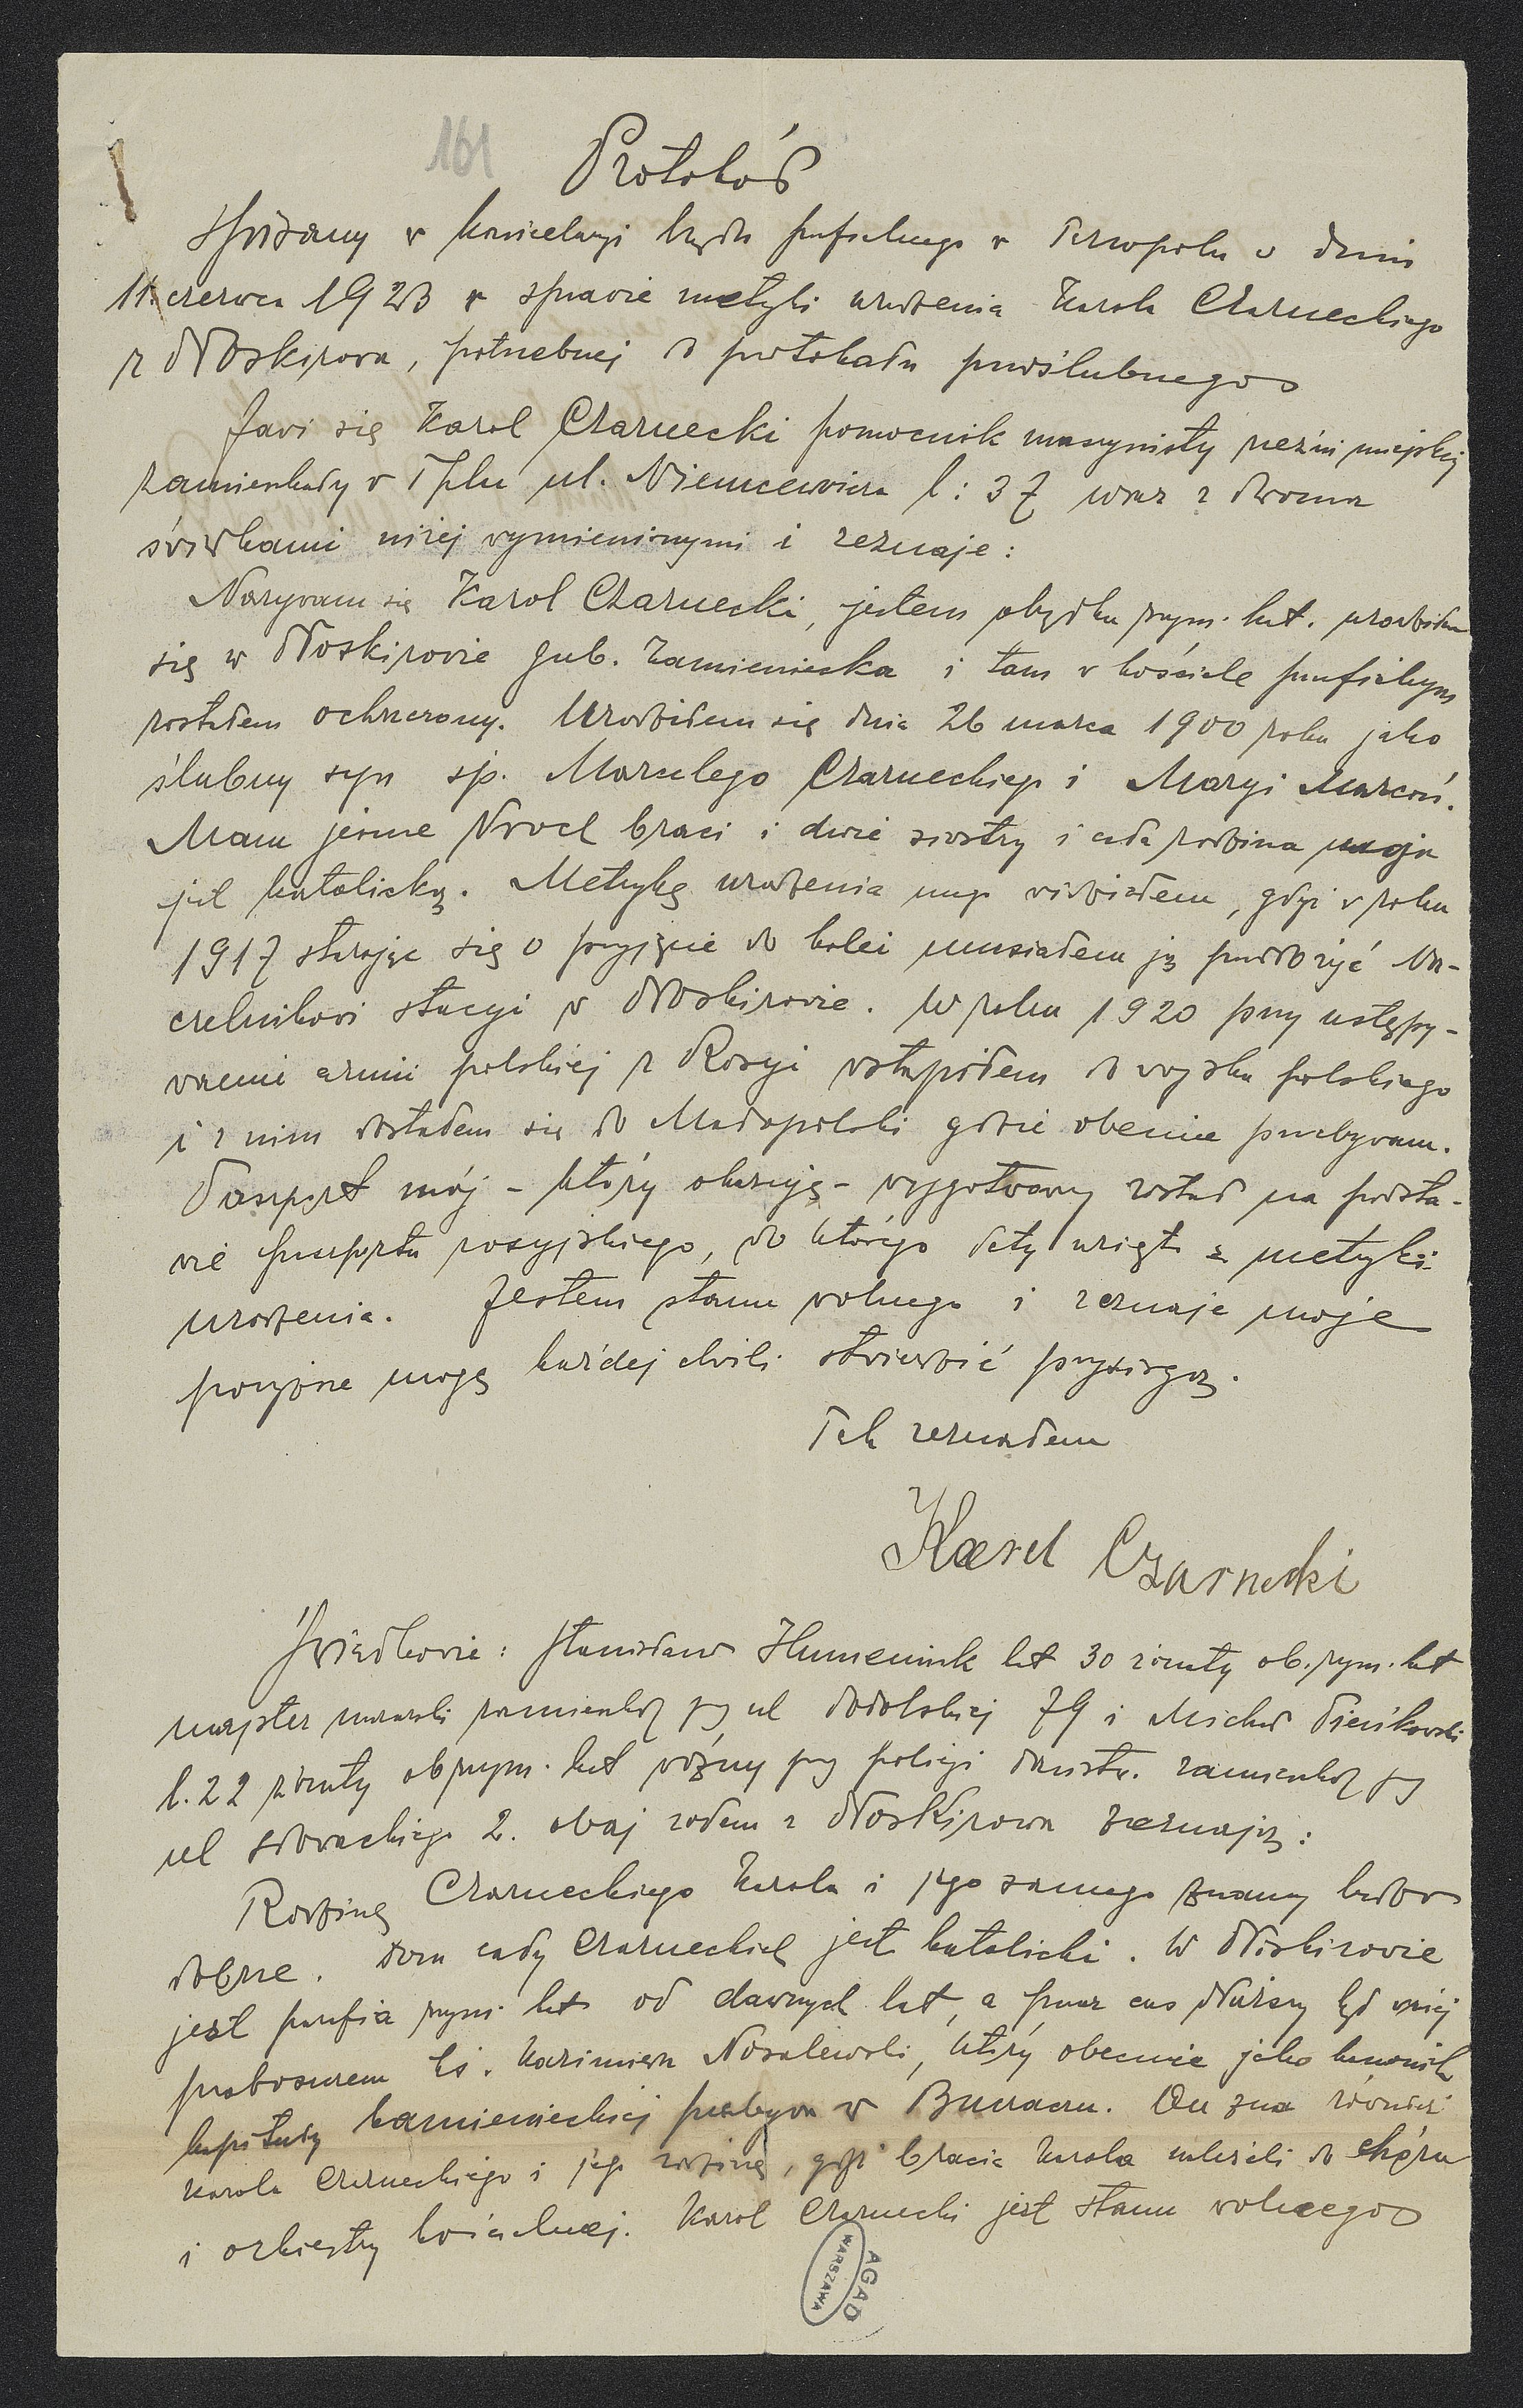 161
Protokół
spisany w kancelaryi urzędu parafialnego w Tarnopolu w dniu
11. czerwca 1923 w sprawie metryki urodzenia Karola Czarneckiego
z Płoskirowa, potrzebnej do protokołu przedślubnego
Jawi się Karol Czarnecki pomocnik maszynisty rzeźni miejskiej
zamieszkały w Tplu ul. Niemcewicza l: 37 wraz z dwoma
świadkami niżej wymienionymi i zeznaje:
Nazywam się Karol Czarnecki, jestem obrządku rzym. kat. urodziłem
się w Płoskirowie gub. Kamieniecka i tam w kościele parafialnym
zostałem ochrzczony. Urodziłem się dnia 26 marca 1900 roku jako
ślubny syn śp. Marcelego Czarneckiego i Maryi Marcoń.
Mam jeszcze dwóch braci i dwie siostry i cała rodzina moja
jest katolicką. Metrykę urodzenia mego widziałem, gdyż w roku
1917 starając się o przyjęcie do kolei musiałem ją przedłożyć Na-
czelnikowi stacyi w Płoskirowie. W roku 1920 przy ustępy-
waniu armii polskiej z Rosyi wstąpiłem do wojska polskiego
i z nim dostałem się do Małopolski gdzie obecnie przebywam.
Paszport mój - który okazuję - wygotowany został na podsta-
wie paszportu rosyjskiego, do którego daty wzięto z metryki
urodzenia. Jestem stanu wolnego i zeznaje moje
powyższe mogę każdej chwili stwierdzić przysięgą.
Tak zeznałem
Karol Czarnecki
Świadkowie: Stanisław Humeniuk lat 30 żonaty ob. rzym. kat
majster murarski zamieszkały przy ul Podolskiej 79 i Michał Pieńkowski
l. 22 żonaty ob rzym. kat woźny przy policyi państw. zamieszkały przy
ul Słowackiego 2. obaj rodem z Płoskirowa zeznają:
Rodzinę Czarneckiego Karola i jego samego znamy bardzo
dobrze. Dom cały Czarneckich jest katolicki. W Płoskirowie
jest parafia rzym. kat od dawnych lat, a przez czas dłuższy był w niej
proboszczem ks. Kazimierz Nosalewski, który obecnie jako kanonik
kapituły kamienieckiej przebywa w Buczaczu. On zna również
Karola Czarneckiego i jego rodzinę, gdyż bracia Karola należeli do chóru
i orkiestry kościelnej. Karol Czarnecki jest stanu wolnego
AGAD
WARSZAWA